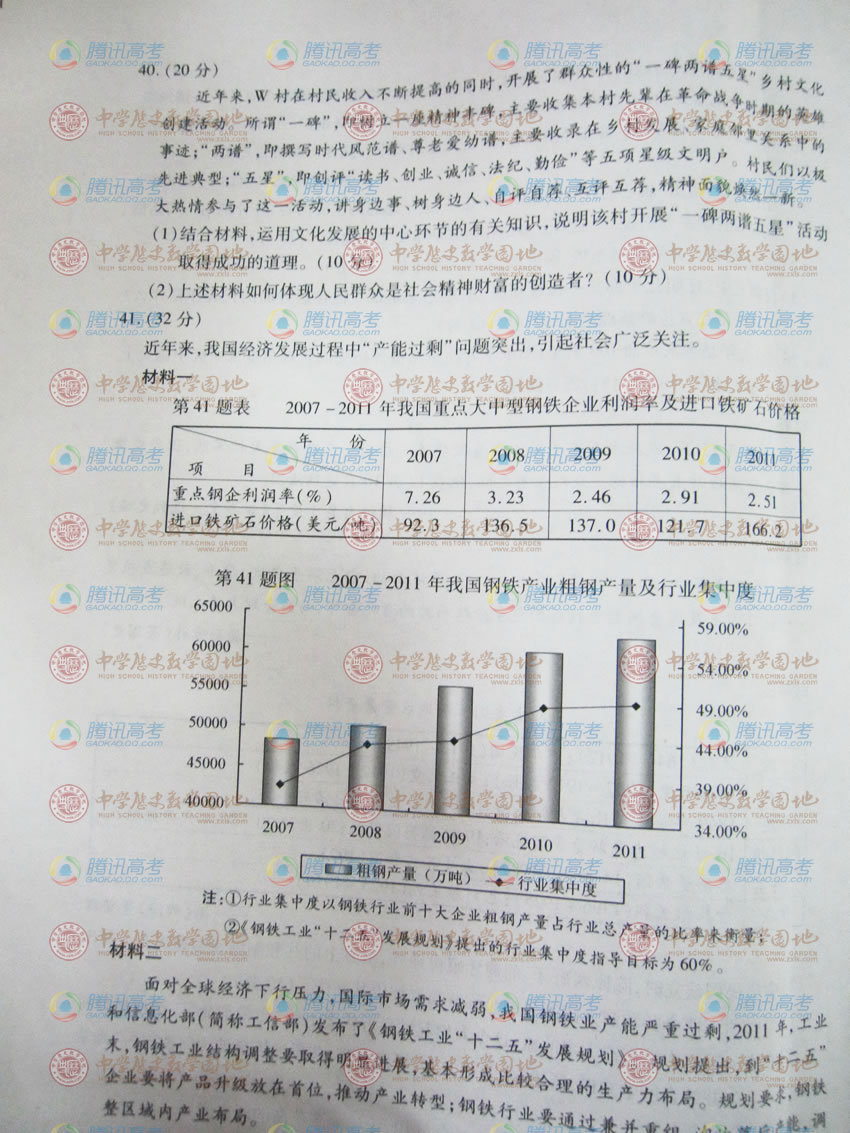 40.(20分)
近年来,W村在村民收入不断提高的同时,开展了群众性的“一碑两谱五星”乡村文化
创建活动。所谓“一碑”,即树立一座精神丰碑,主要收集本村先辈在革命战争时期的英雄
事迹;“两谱”,即撰写时代风范谱、尊老爱幼谱,主要收录在乡村发展、家庭邻里关系中的
先进典型;“五星”,即创评“读书、创业、诚信、法纪、勤俭”等五项星级文明户。村民们以极
大热情参与了这一活动,讲身边事、树身边人、自评自荐、互评互荐,精神面貌焕然一新。
(1)结合材料,运用文化发展的中心环节的有关知识,说明该村开展“一碑两谱五星”活动
取得成功的道理。(10分)
(2)上述材料如何体现人民群众是社会精神财富的创造者?(10分)
41.(32分)
近年来,我国经济发展过程中“产能过剩”问题突出,引起社会广泛关注。
材料一
第41题表 2007-2011年我国重点大中型钢铁企业利润率及进口铁矿石价格
年 份
项 目
2007 2008 2009 2010 2011
重点钢企利润率(%) 7.26 3.23 2.46 2.91 2.51
进口铁矿石价格(美元/吨) 92.3 136.5 137.0 121.7 166.2
第41题图 2007-2011年我国钢铁产业粗钢产量及行业集中度
65000
60000
55000
50000
45000
40000
59.00%
54.00%
49.00%
44.00%
39.00%
34.00%
2007 2008 2009 2010 2011
粗钢产量(万吨) 行业集中度
注:①行业集中度以钢铁行业前十大企业粗钢产量占行业总产量的比率来衡量;
②《钢铁工业“十二五”发展规划》提出的行业集中度指导目标为60%。
材料二
面对全球经济下行压力,国际市场需求减弱,我国钢铁业产能严重过剩,2011年,工业
和信息化部(简称工信部)发布了《钢铁工业“十二五”发展规划》。规划提出,到“十二五”
末,钢铁工业结构调整要取得明显进展,基本形成比较合理的生产力布局。规划要求,钢铁
企业要将产品升级放在首位,推动产业转型;钢铁行业要通过兼并重组、淘汰落后产能,调
整区域内产业布局。
腾讯高考
GAOKAO.QQ.COM
中学历史教学园地
HIGH SCHOOL HISTORY TEACHING GARDEN
www.zxls.com